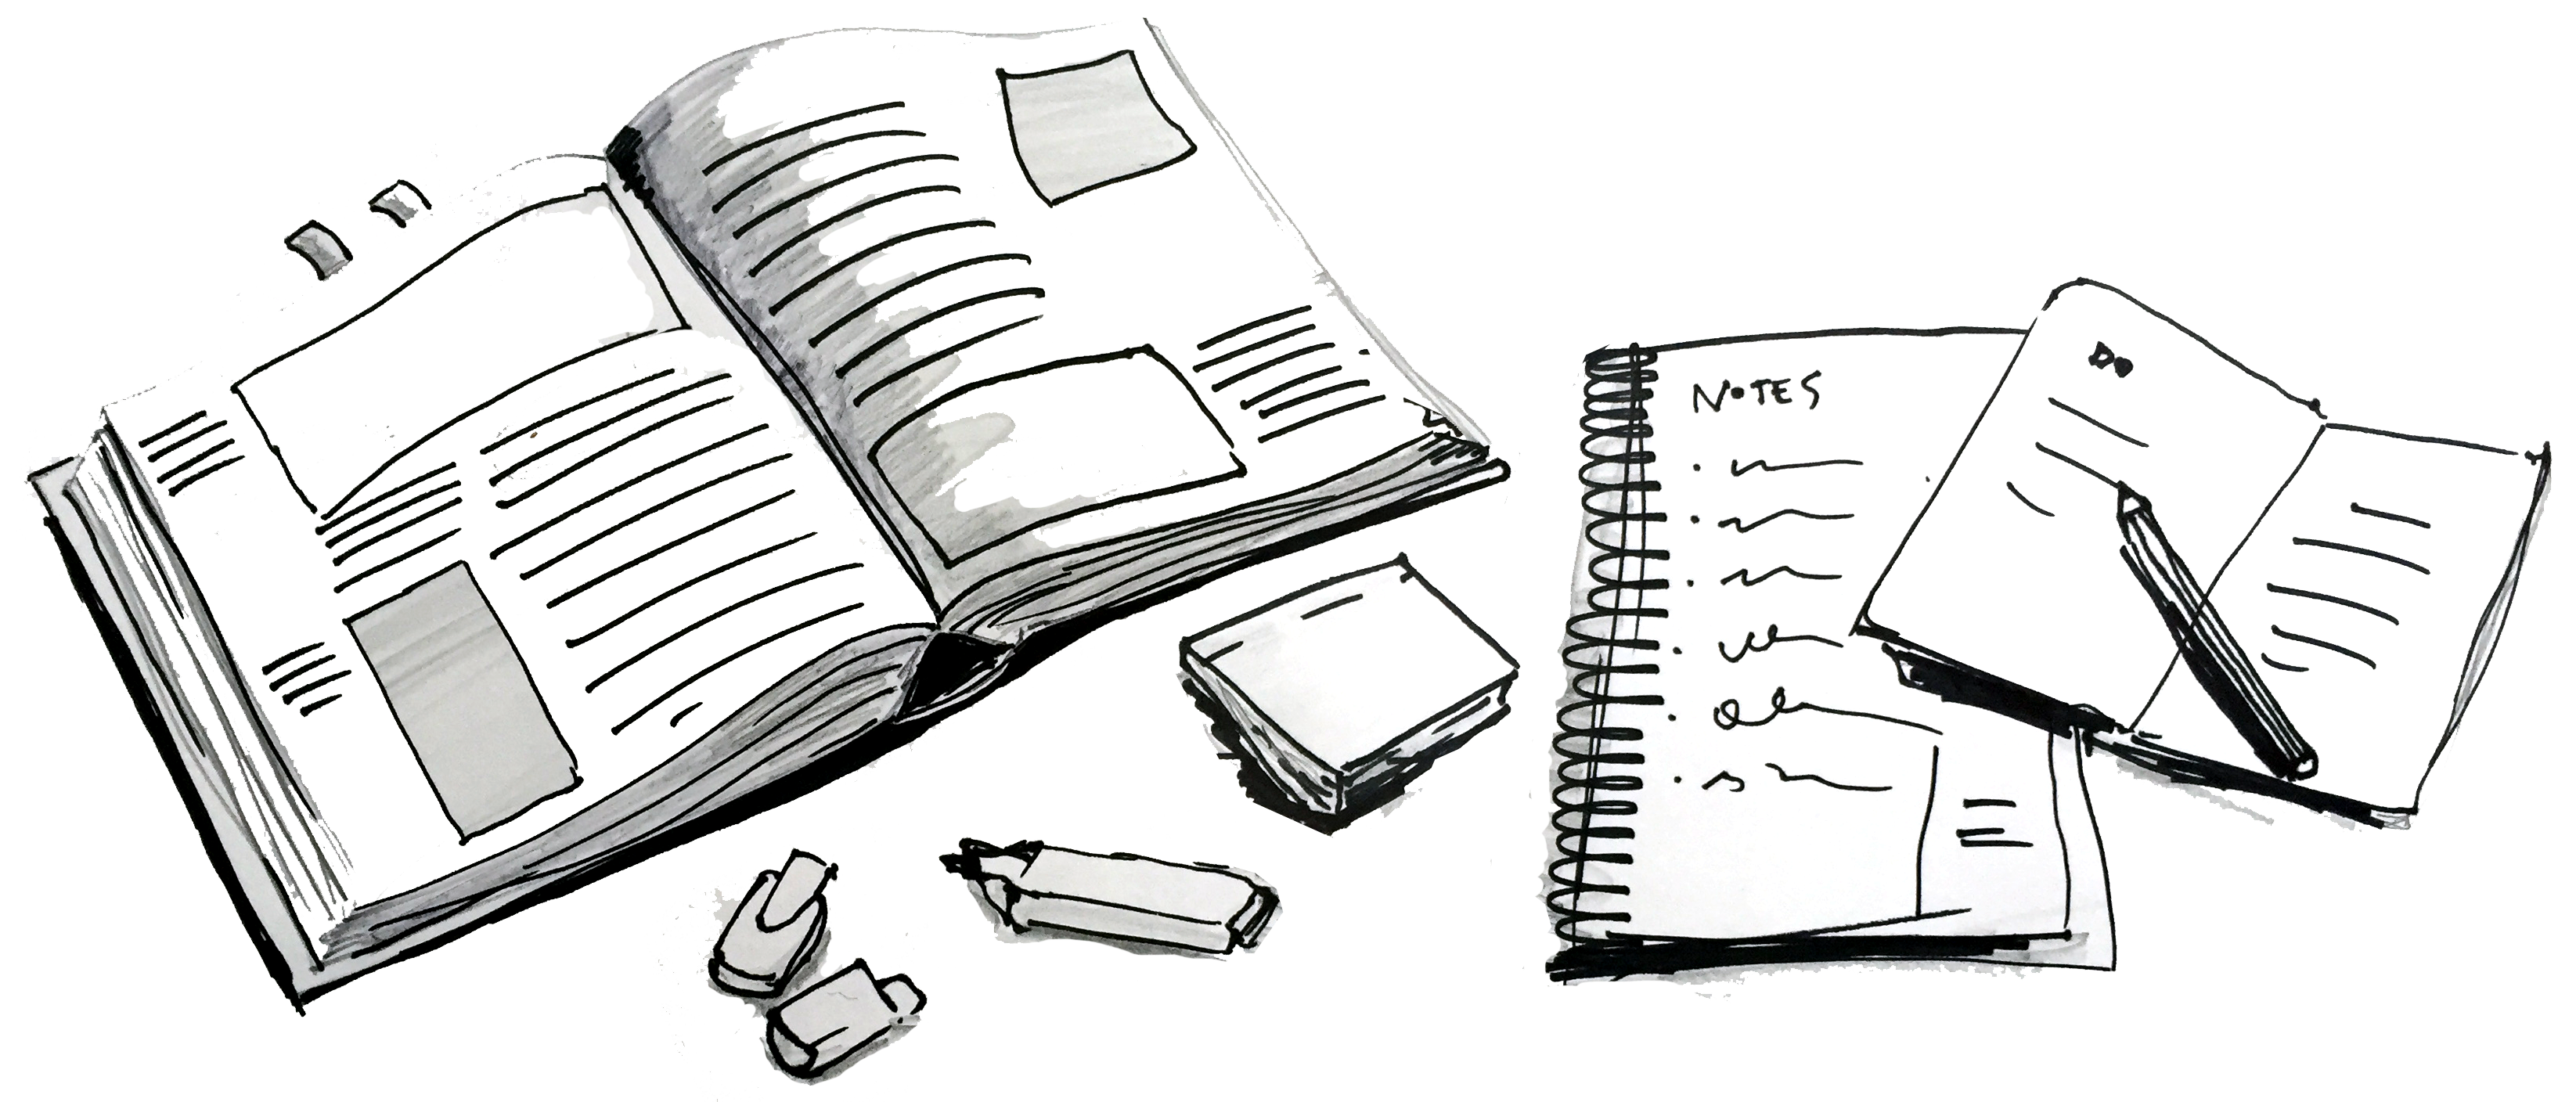 NOTES
DO